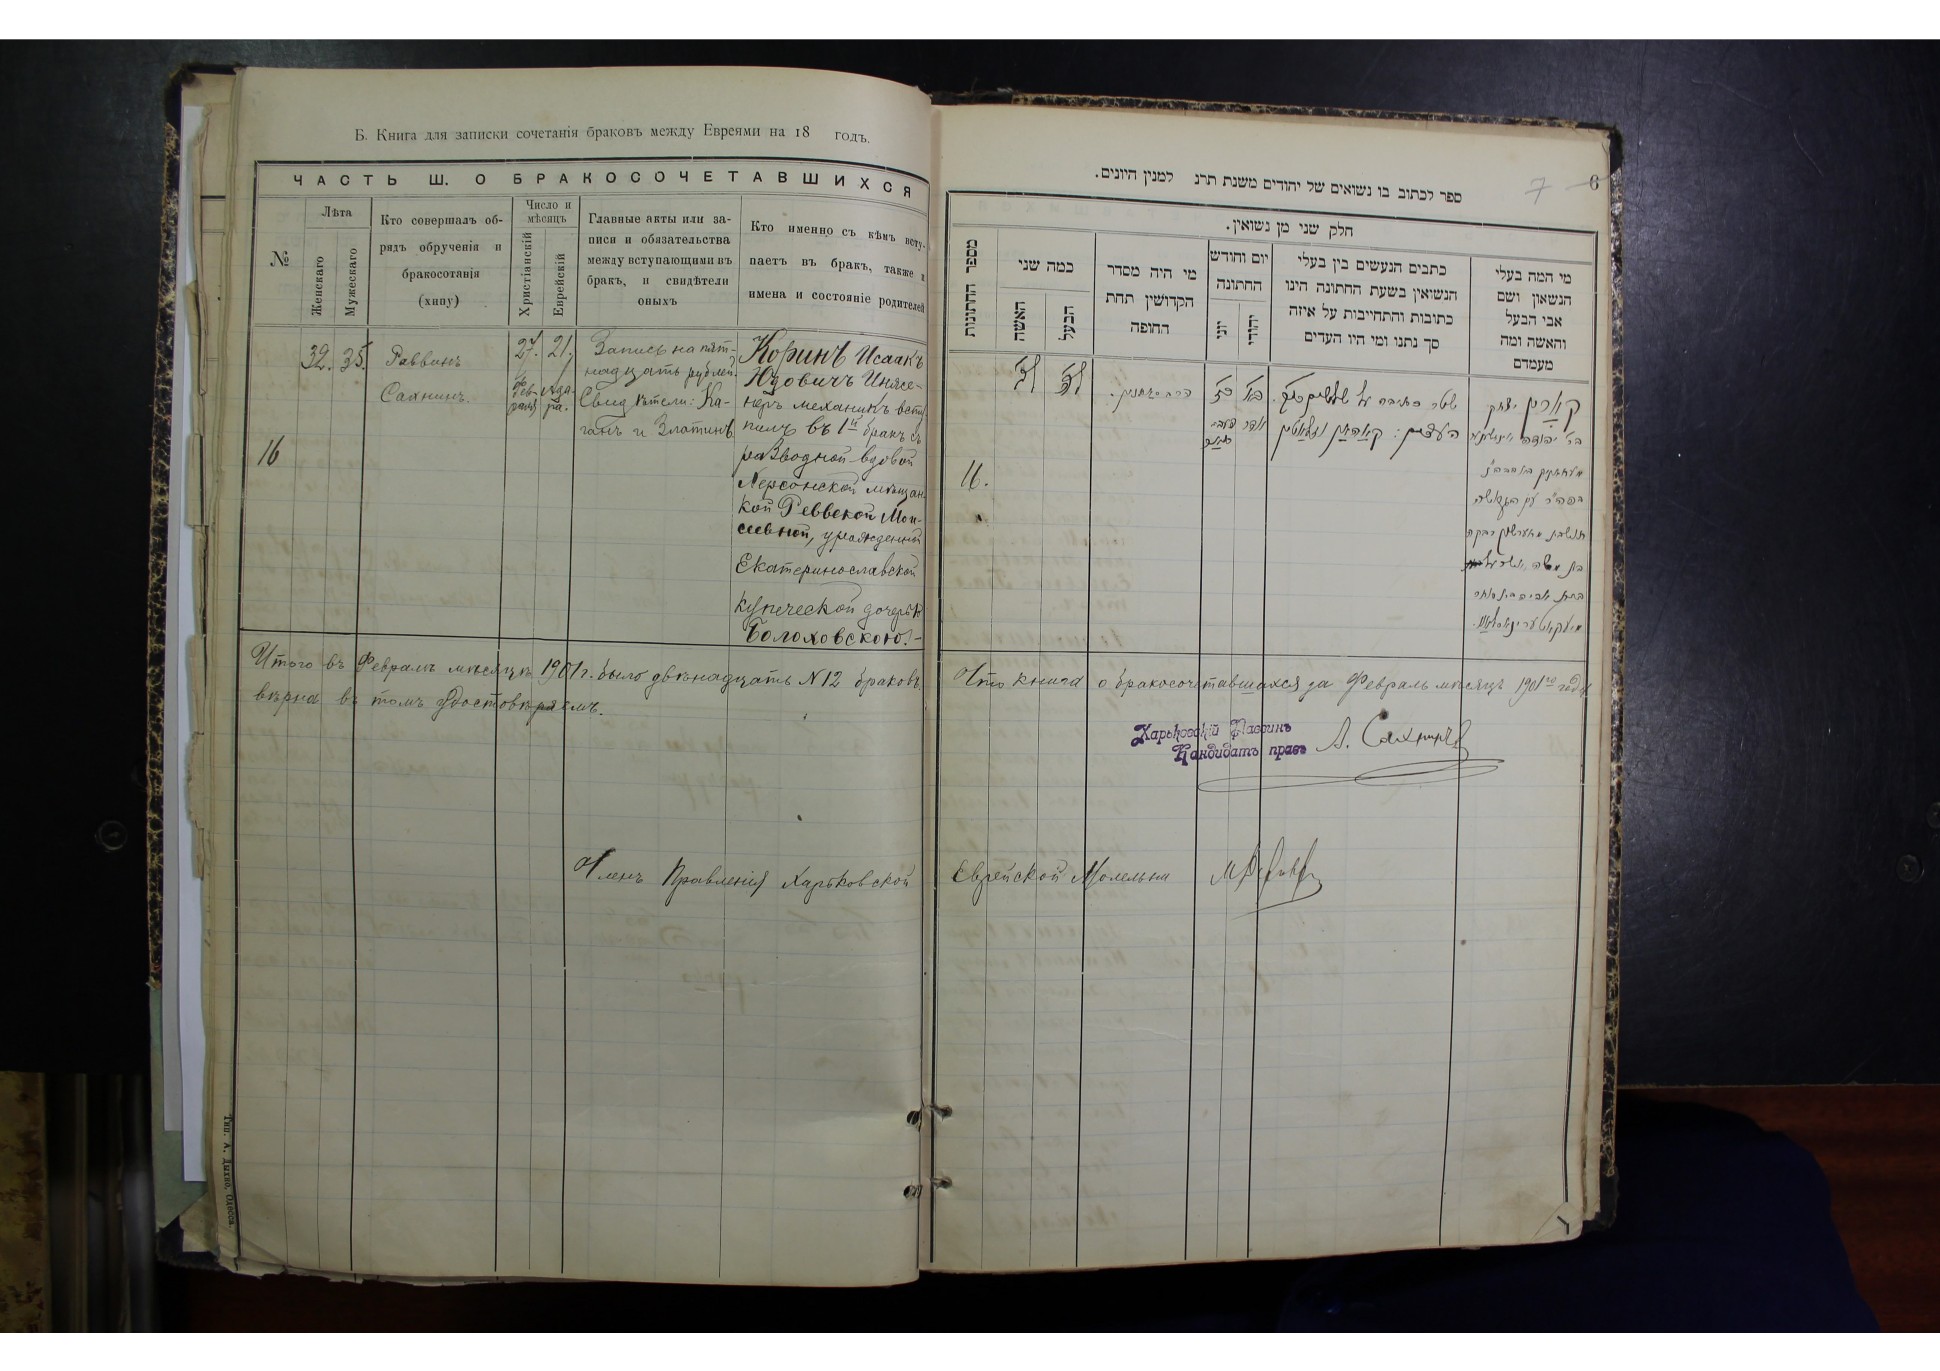 Б. Книга для записки сочетанія браковъ между Евреями на 18 годъ.
ЧАСТЬ Ш. О БРАКОСОЧЕТАВШИХСЯ
№
Лѣта
Женскаго
Мужескаго
Кто совершалъ об-
рядъ обрученія и
бракосотанія
(хипу)
Число и
мѣсяцъ
Христіанскій
Еврейскій
Главные акты или за-
писи и обязательства
между вступающими въ
бракъ, и свидѣтели
оныхъ
Кто именно съ кѣмъ всту-
паетъ въ бракъ, также и
имена и состояніе родителей
16
32. 35.
Раввинъ
Сахнинъ.
27.
Фев-
раля
21.
Ада-
ра.
Запись на пят-
надцать рублей.
Свидѣтели: Ка-
ганъ и Златинъ
Коринъ Исаакъ
Юдовичъ Инже-
неръ механикъ всту-
пилъ въ 1й бракъ съ
разводной-вдовой
Херсонской мѣщан-
кой Реввекой Мои-
сеевной, урожденной
Екатеринославской
купеческой дочерью
Болоховскою.-
Итого въ Февралѣ мѣсяцѣ 1901 г. было двѣнадцать N 12 браковъ.
вѣрна въ томъ удостовѣряемъ.
Членъ Правленія Харьковской
Тип. А. Дыхно, Одесса.
7
6
ספר לכתוב בו נשואים של יהודים משנת תרנ למנין היונים.
חלק שני מן נשואין.
מספר החתונות
כמה שני
האשה
הבעל
מי היה מסדר
הקדושין תחת
החופה
יום וחודש
החתונה
יוני
יהודי
כתבים הנעשים בין בעלי
הנשואין בשעת החתונה הינו
כתובות והתחייבות על איזה
סך נתנו ומי היו העדים
מי המה בעלי
הנשאון ושם
אבי הבעל
והאשה ומה
מעמדם
16.
לב
לה
כז
כא
אדר
העדים: קאהאן וזלאטין
קארין יצחק
Что книга о бракосочетавшихся за Февраль мѣсяцъ 1901го года
Харьковскій Раввинъ
Кандидатъ правъ
А. Сахнинъ
Еврейской Молельни